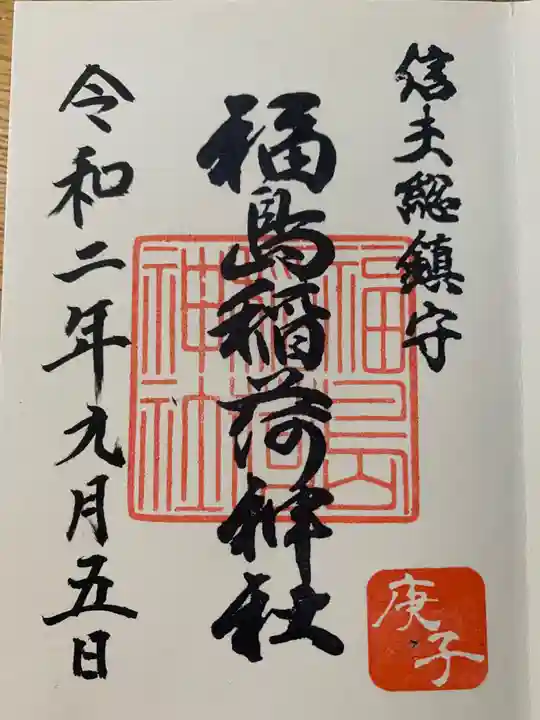 信夫総鎮守
福島稲荷神社
令和二年九月五日
福島
稲荷
神社
庚子